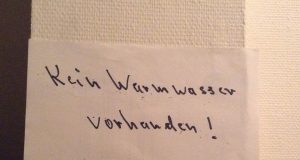 Kein Warmwasser
vorhanden!